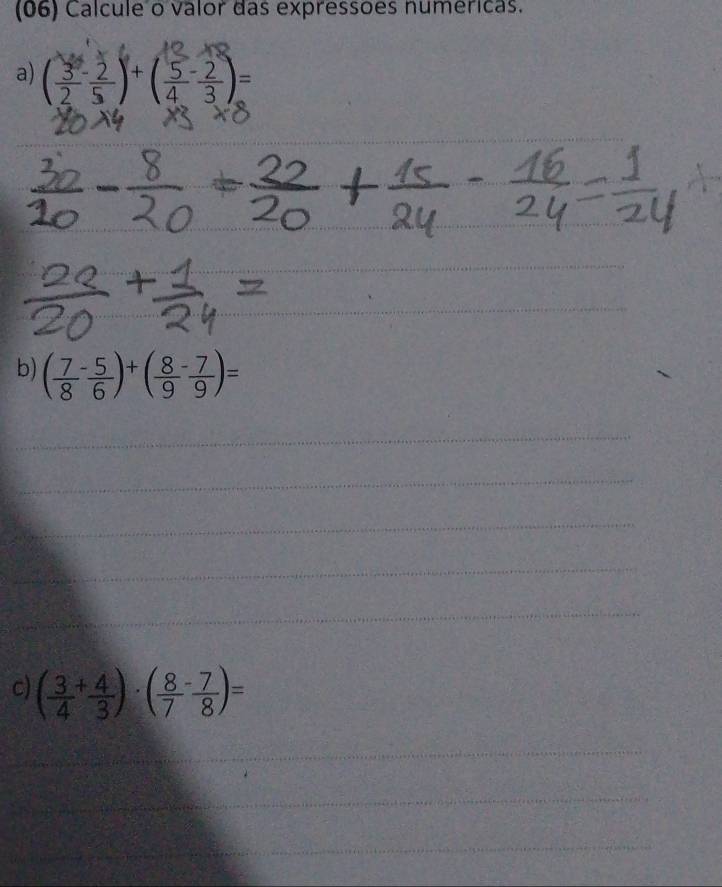 (06) Calcule o valor das expressões numéricas.
a) (3/2 - 2/5) + (5/4 - 2/3) =
x4 x3 x8
30/20 - 8/20 = 22/20 + 15/24 - 16/24 = 1/24 +
22/20 + 1/24 =
b) (7/8 - 5/6) + (8/9 - 7/9) =
c) (3/4 + 4/3) · (8/7 - 7/8) =